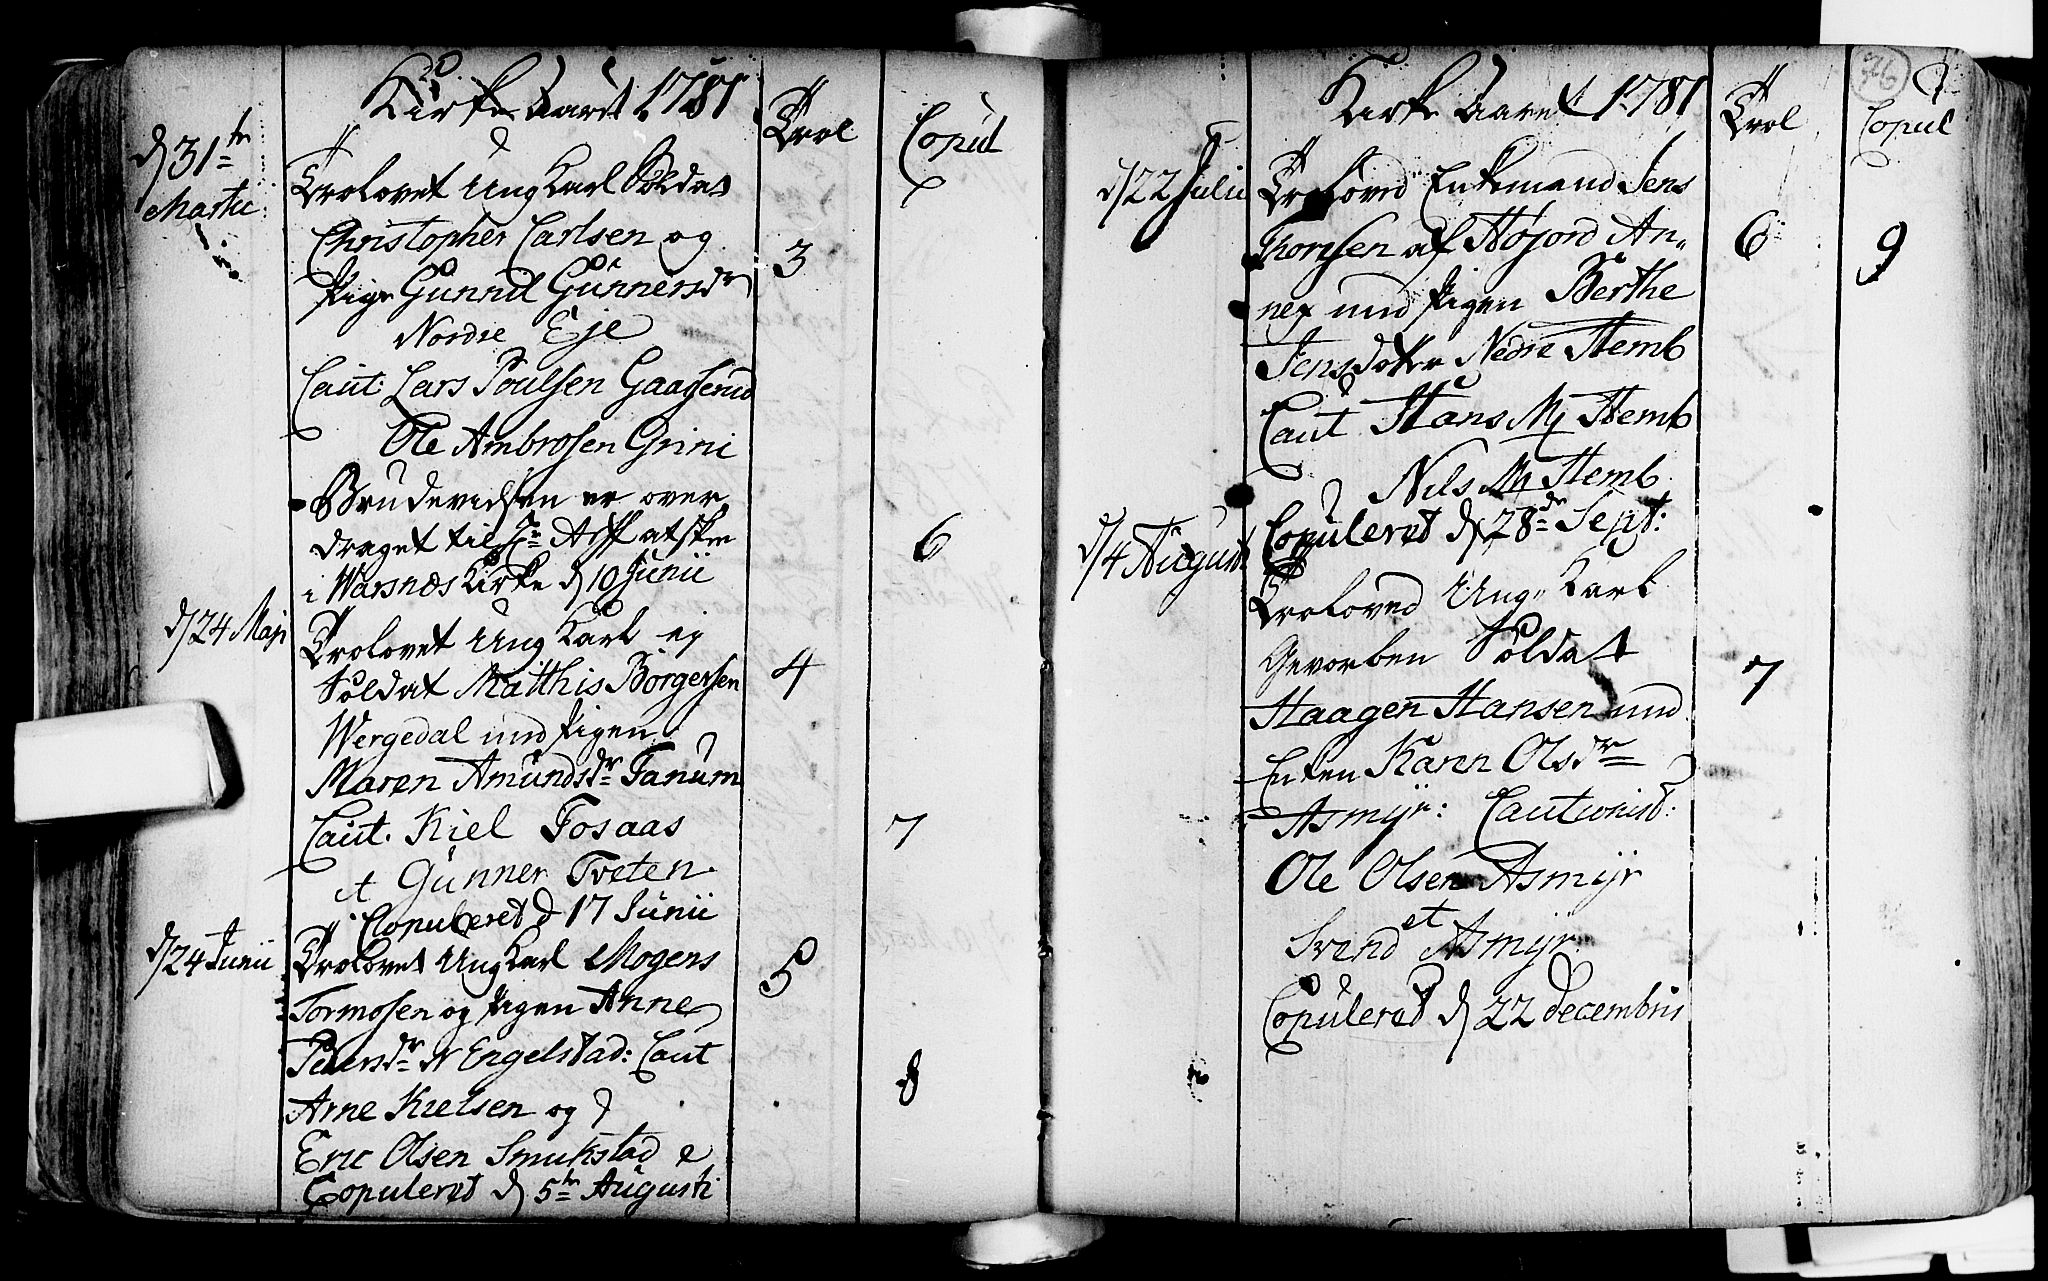 Kirke Aaret 1781
Trol
Copul
d 31te
Martii
Trolovet Ung Karl Soldat
Christopher Carlsen og
Pige Gunnil Gunnersdr
3
Nordre Eje
Caut: Lars Poulsen Gaaserud
Ole Ambrosen Grini
Brudevielsen er over
draget til Hr Arff at skee
6
i Warsnæs Kirke d 10 Junii
d 24 Maji
Trolovet Ung Karl og
Soldat Matthis Börgersen
4
Wergedal med Pigen
Maren Amundsdr Fanum
Caut. Kiel Fosaas
7
et Gunner Tveten
Copuleret d 17 Junii
d 24 Junii
Trolovet Ung Karl Mogens
5
Tormosen og Pigen Anne
Pedersdr N Engelstad: Caut
8
Arne Kielsen og
Eric Olsen Smukstad
Copuleret d 5te Augusti
76
Kirke Aaret 1781
Trol
Copul
d 22 Julii
Troloved Enkemand Jens
Thorsen af Højord An„
6
9
nex med Pigen Berthe
Jensdatter Nedre Hemb
Caut Hans M Hemb
Nils M Hemb
Copuleret d 28de Sept:
d 4 August
Troloved Ung Karl
Gevorben Soldat
7
Haagen Hansen med
Enken Karen Olsdr
Asmyr: Cautionist:
Ole Olsen Asmyr
et
Svend Asmyr
Copuleret d 22 decembris